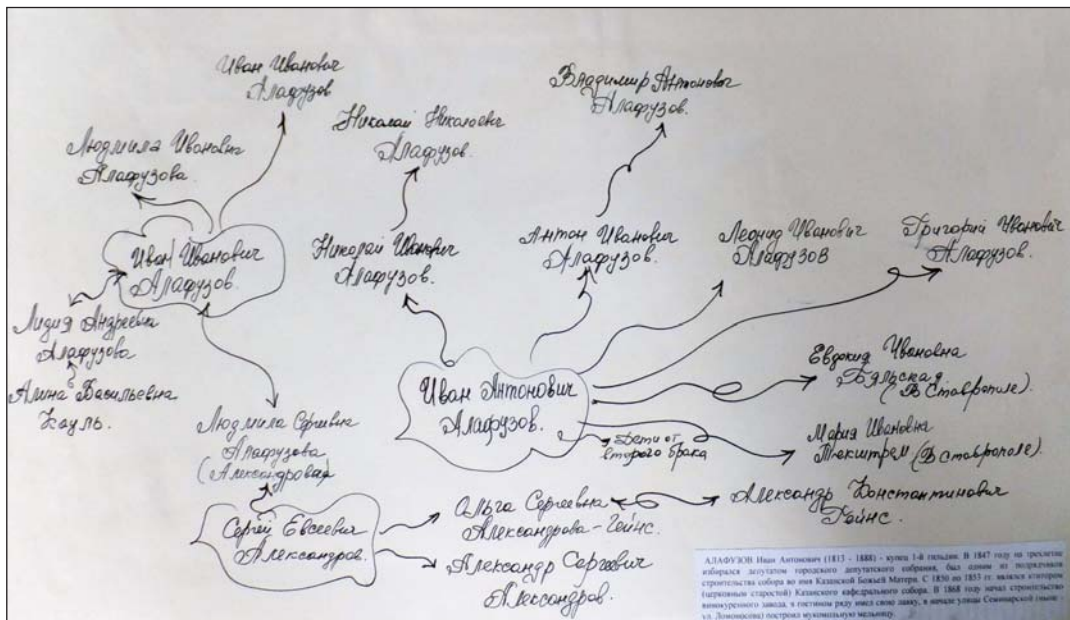 Иван Иванович
Алафузов
Владимир Антонович
Алафузов.
Николай Николаевич
Алафузов.
Людмила Ивановна
Алафузова.
Иван Иванович
Алафузов.
Николай Иванович
Алафузов.
Антон Иванович
Алафузов.
Леонид Иванович
Алафузов
Григорий Иванович
Алафузов.
Лидия Андреевна
Алафузова
Алина Васильевна
Кауль.
Иван Антонович
Алафузов.
Евдокия Ивановна
Бяльская
(В Ставрополе).
Мария Ивановна
Текштрем (В Ставрополе).
Дети от
второго брака
Людмила Сергеевна
Алафузова
(Александрова)
Сергей Евсеевич
Александров.
Ольга Сергеевна
Александрова-Гейнс.
Александр Константинович
Гейнс.
Александр Сергеевич
Александров.
АЛАФУЗОВ Иван Антонович (1813 - 1888) - купец 1-й гильдии. В 1847 году на трехлетие
избирался депутатом городского депутатского собрания, был одним из подрядчиков
строительства собора во имя Казанской Божьей Матери. С 1850 по 1853 гг. являлся ктитором
(церковным старостой) Казанского кафедрального собора. В 1868 году начал строительство
винокуренного завода, в гостином ряду имел свою лавку, в начале улицы Семинарской (ныне -
ул. Ломоносова) построил мукомольную мельницу.